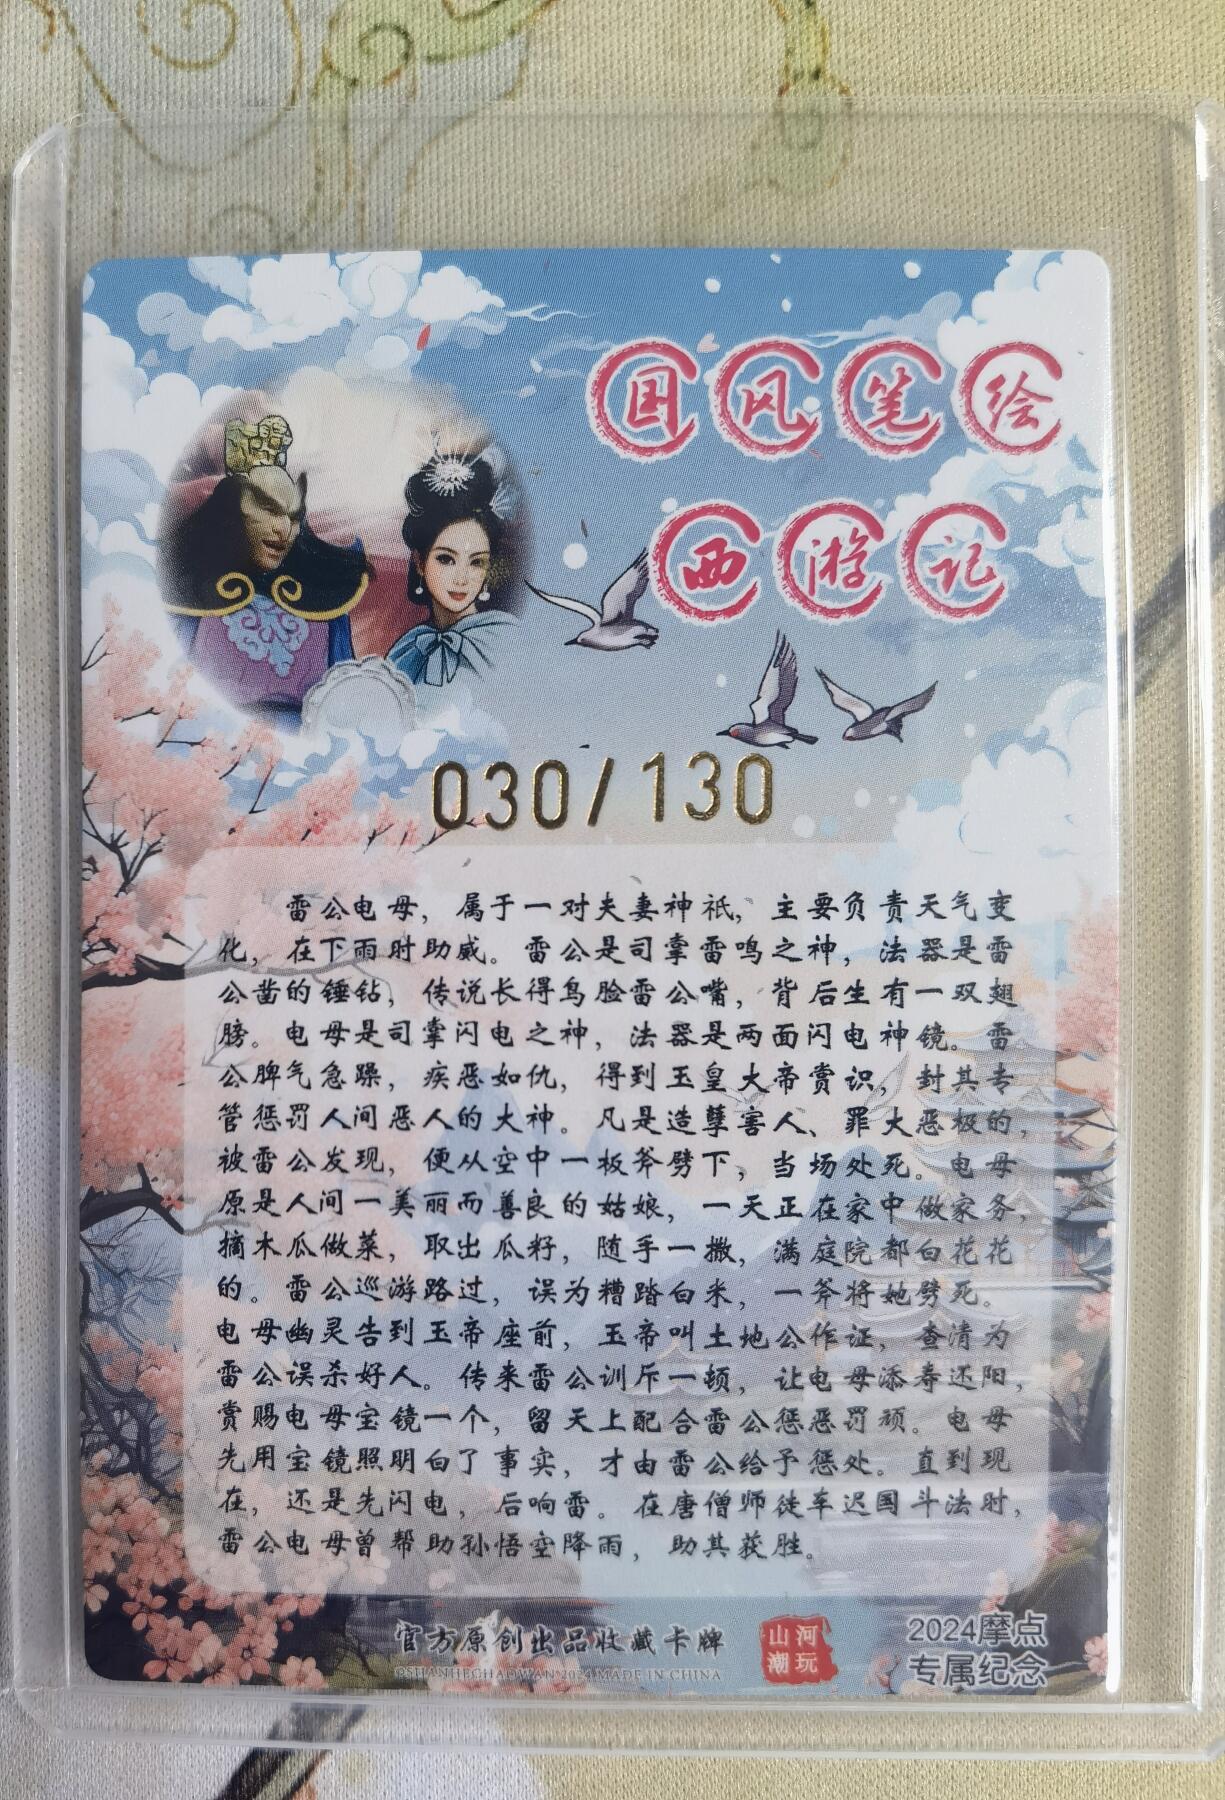 国风笔绘
西游记
030/130
雷公电母，属于一对夫妻神祇，主要负责天气变
化，在下雨时助威。雷公是司掌雷鸣之神，法器是雷
公凿的锤钻，传说长得鸟脸雷公嘴，背后生有一双翅
膀。电母是司掌闪电之神，法器是两面闪电神镜。雷
公脾气急躁，疾恶如仇，得到玉皇大帝赏识，封其专
管惩罚人间恶人的大神。凡是造孽害人、罪大恶极的，
被雷公发现，便从空中一板斧劈下，当场处死。电母
原是人间一美丽而善良的姑娘，一天正在家中做家务，
摘木瓜做菜，取出瓜籽，随手一撒，满庭院都白花花
的。雷公巡游路过，误为糟踏白米，一斧将她劈死。
电母幽灵告到玉帝座前，玉帝叫土地公作证，查清为
雷公误杀好人。传来雷公训斥一顿，让电母添寿还阳，
赏赐电母宝镜一个，留天上配合雷公惩恶罚顽。电母
先用宝镜照明白了事实，才由雷公给予惩处。直到现
在，还是先闪电，后响雷。在唐僧师徒车迟国斗法时，
雷公电母曾帮助孙悟空降雨，助其获胜。
官方原创出品收藏卡牌
©SHANHECHAOWAN 2024 MADE IN CHINA
山河
潮玩
2024摩点
专属纪念